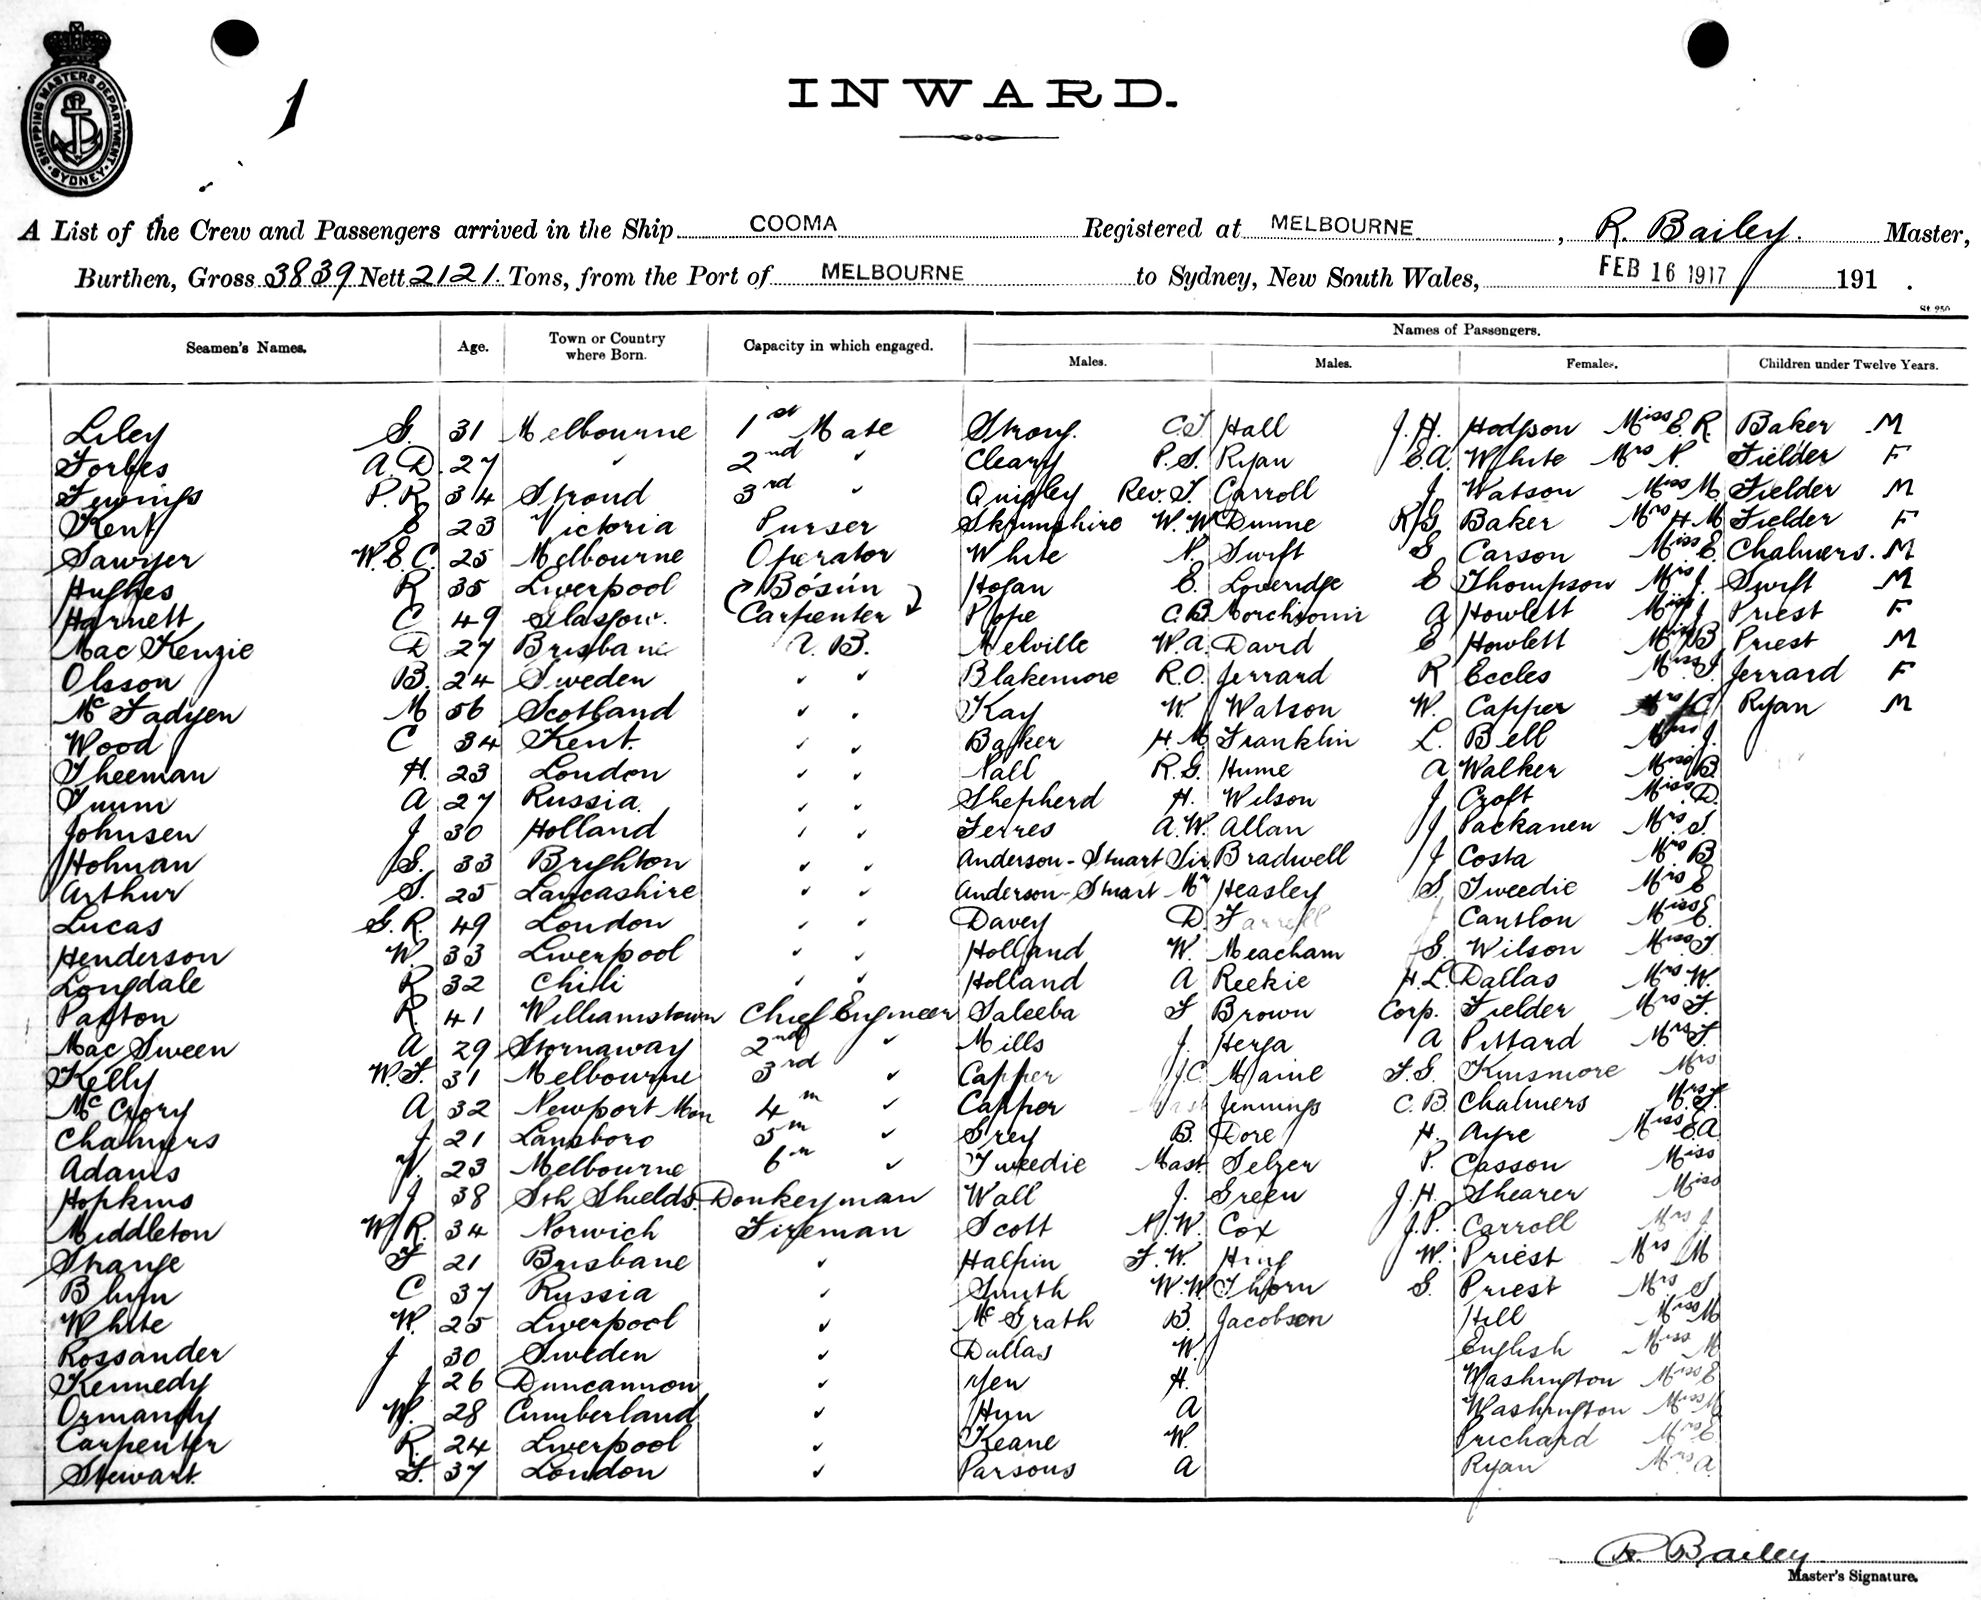 SHIPPING MASTERS DEPARTMENT SYDNEY
1
INWARD.
A List of the Crew and Passengers arrived in the Ship COOMA Registered at MELBOURNE, R. Bailey. Master,
Burthen, Gross 3839 Nett 2121. Tons, from the Port of MELBOURNE to Sydney, New South Wales, FEB 16 1917 191 .
St. 250
Names of Passengers.
Seamen's Names. Age. Town or Country where Born. Capacity in which engaged. Males. Males. Females. Children under Twelve Years.
Liley G. 31 Melbourne 1st Mate Strong. C.T. Hall J.H. Hodgson Miss E.R. Baker M
Forbes A.D. 27 " 2nd " Cleary P.S. Ryan E.A. White Mrs N. Fielder F
P.R. 34 Stroud 3rd " Quigley Rev. T. Carroll J Watson Miss M Fielder M
Kent E 23 Victoria Purser Skrimshire W.W. Dunne R.G. Baker Mrs H M Fielder F
Sawyer W.E.C. 25 Melbourne Operator White N. Swift G Carson Miss E. Chalmers. M
Hughes R 35 Liverpool Bósún Hogan E. Loveridge E Thompson J. Swift M
Harnett C 49 Glasgow. Carpenter Pope C.B. A Howlett Miss J Priest F
Mac Kenzie D 27 Brisbane A.B. Melville W.A. David E Howlett Miss B Priest M
Olsson B. 24 Sweden " " Blakemore R.O. Jerrard R Eccles Miss J. Jerrard F
McFadyen M 56 Scotland " " Kay W. Watson W. Capper Mrs J.C. Ryan M
Wood C 34 Kent. " " Baker H.M. Franklin L. Bell J.
Theeman H. 23 London " " Nall R.G. Hume A Walker Miss B.
A 27 Russia. " " Shepherd H. Wilson J Croft Miss D.
Johnsen J 30 Holland " " Ferres A.W. Allan J Packanen Mrs S.
Holman G. 33 Brighton " " Anderson-Stuart Sir Bradwell J Costa Mrs B
Arthur S. 25 Lancashire " " Anderson-Stuart Mr Heasley S. Tweedie Mrs E
Lucas G.R. 49 London " " Davey D. Farrell J Cantlon Miss E.
Henderson W. 33 Liverpool " " Holland W. Meacham G. Wilson Miss J.
Longdale R 32 Chili " " Holland A Reekie H.L. Dallas Mrs W.
Paxton R. 41 Williamstown Chief Engineer Saleeba F Brown Corp. Fielder Mrs F.
Mac Sween A 29 Stornaway 2nd " Mills J. Herga A Pittard Mrs F.
Kelly W.F. 31 Melbourne 3rd " Capper J.C. Maine F.G. Kinsmore Mrs
McCrory A 32 Newport Mon 4th " Capper Mast Jennings C.B. Chalmers Mrs
Chalmers J 21 Lansboro 5th " Grey B. Dore H. Ayre Miss E.A.
Adams 23 Melbourne 6th " Tweedie Mast Selzer P. Casson Miss
Hopkins J 38 Sth Shields. Donkeyman Wall J. Green J.H. Shearer Miss
Middleton W.R. 34 Norwich Fireman Scott N.W. Cox J.P. Carroll Mrs J
Strange F 21 Brisbane " Halpin F.W. W. Priest Mrs M
Blum C 37 Russia " Smith W.W. Thorn G. Priest Mrs S
White W. 25 Liverpool " McGrath B. Jacobsen Hill Miss M
Rossander J 30 Sweden " Dallas W. English Miss M
Kennedy J 26 Duncannon " Yen H. Washington Miss E
Ormandy W. 28 Cumberland " Hun A Washington Miss M
Carpenter R. 24 Liverpool " Keane W. Prichard E
Stewart F. 37 London " Parsons A Ryan Mrs A.
R. Bailey
Master's Signature.